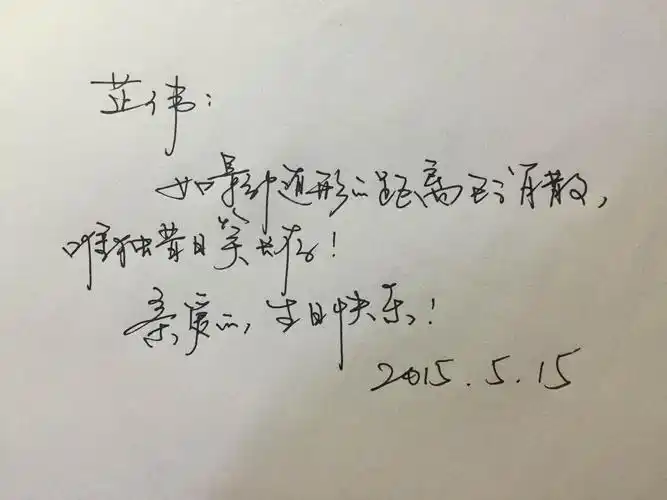 芷伟:
如影随形的距离已消散,
唯独昔日笑长存!
亲爱的,生日快乐!
2015.5.15